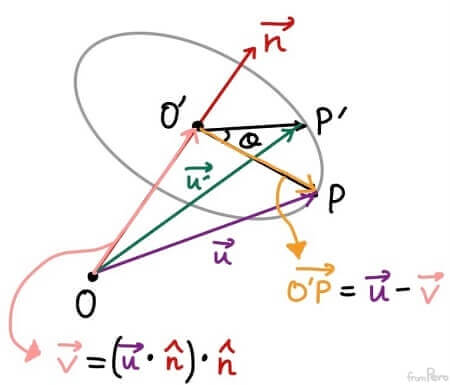 n⃗
O′
P′
θ
u⃗′
P
u⃗
O′P⃗ = u⃗ - v⃗
O
v⃗ = (u⃗ · n̂) · n̂
from Pero